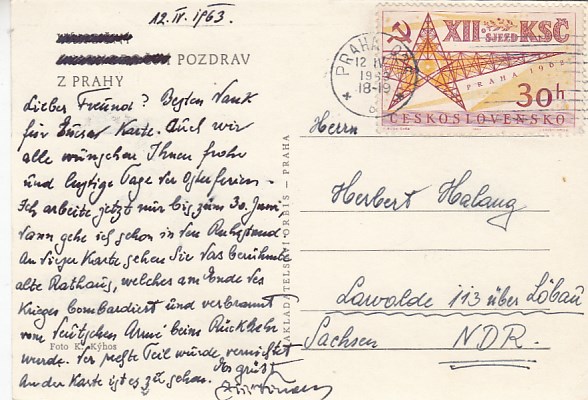 12.IV.1963.
POZDRAV
Z PRAHY
Lieber Freund! Besten Dank
für Eueren Karte. Auch wir
alle wünschen Ihnen frohe
und lustige Tage der Osterferien.
Ich arbeite jetzt nur bis zum 30. Juni,
dann gehe ich schon in den Ruhestand
An dieser Karte sehen Sie das berühmte
alte Rathaus, welches am Ende des
Krieges bombardiert und verbrannt
vom Deutschen Armé beim Rückkehr
wurde. Der rechte Teil würde vernichtet
An der Karte ist es zu sehen. Es grüsst
Foto K. Kýhos
NAKLADATELSTVÍ ORBIS — PRAHA
XII. SJEZD KSČ
PRAHA 1962
30h
ČESKOSLOVENSKO
PRAHA
12 IV
18-19
Herrn
Herbert Halang
Lawalde 113 über Löbau
Sachsen NDR.